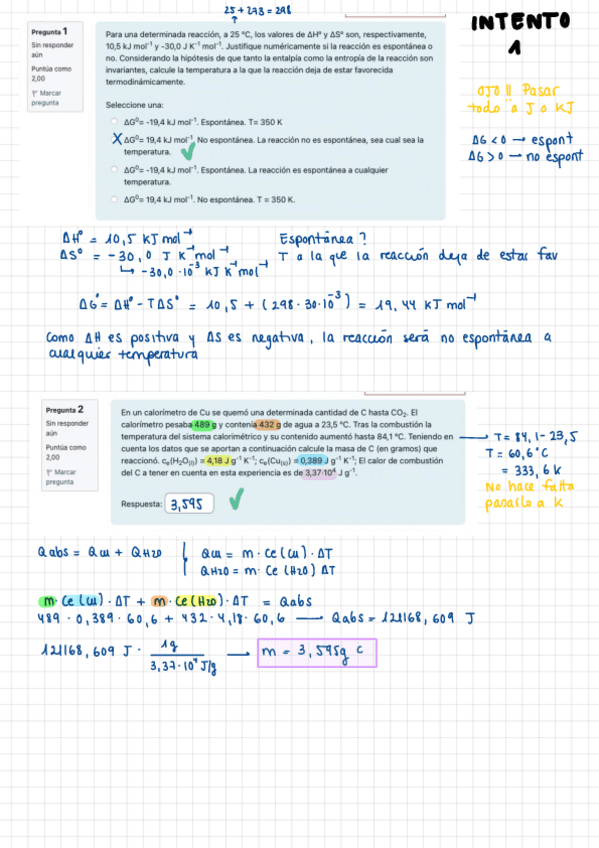 25 + 273 = 298
INTENTO
1
Pregunta 1
Sin responder
aún
Puntúa como
2,00
Marcar
pregunta
Para una determinada reacción, a 25 ºC, los valores de ΔHº y ΔSº son, respectivamente,
10,5 kJ mol⁻¹ y -30,0 J K⁻¹ mol⁻¹. Justifique numéricamente si la reacción es espontánea o
no. Considerando la hipótesis de que tanto la entalpía como la entropía de la reacción son
invariantes, calcule la temperatura a la que la reacción deja de estar favorecida
termodinámicamente.
Seleccione una:
ΔG⁰= -19,4 kJ mol⁻¹. Espontánea. T= 350 K
X ΔG⁰= 19,4 kJ mol⁻¹. No espontánea. La reacción no es espontánea, sea cual sea la
temperatura. ✓
ΔG⁰= -19,4 kJ mol⁻¹. Espontánea. La reacción es espontánea a cualquier
temperatura.
ΔG⁰= 19,4 kJ mol⁻¹. No espontánea. T = 350 K.
OJO!! Pasar
todo a J o KJ
ΔG < 0 → espont
ΔG > 0 → no espont
ΔHº = 10,5 KJ mol⁻¹
ΔSº = -30,0 J K⁻¹ mol⁻¹
↳ -30,0 · 10⁻³ KJ K⁻¹ mol⁻¹
Espontánea?
T a la que la reacción deja de estar fav
ΔGº = ΔHº - TΔSº = 10,5 + (298 · 30·10⁻³) = 19,44 KJ mol⁻¹
Como ΔH es positiva y ΔS es negativa, la reacción será no espontánea a
cualquier temperatura
Pregunta 2
Sin responder
aún
Puntúa como
2,00
Marcar
pregunta
En un calorímetro de Cu se quemó una determinada cantidad de C hasta CO₂. El
calorímetro pesaba 489 g y contenía 432 g de agua a 23,5 ºC. Tras la combustión la
temperatura del sistema calorimétrico y su contenido aumentó hasta 84,1 ºC. Teniendo en
cuenta los datos que se aportan a continuación calcule la masa de C (en gramos) que
reaccionó. cₑ(H₂O₍ₗ₎) = 4,18 J g⁻¹ K⁻¹; cₑ(Cu₍ₛ₎) = 0,389 J g⁻¹ K⁻¹; El calor de combustión
del C a tener en cuenta en esta experiencia es de 3,37·10⁴ J g⁻¹.
Respuesta: 3,595 ✓
→ T = 84,1 - 23,5
T = 60,6 ºC
= 333,6 K
No hace falta
pasarlo a K
Qabs = Qcu + QH2O
Qcu = m · Ce (Cu) · ΔT
QH2O = m · Ce (H2O) ΔT
m · Ce (Cu) · ΔT + m · Ce (H2O) · ΔT = Qabs
489 · 0,389 · 60,6 + 432 · 4,18 · 60,6 → Qabs = 121168,609 J
121168,609 J · 1g / 3,37·10⁴ J/g → m = 3,595g C